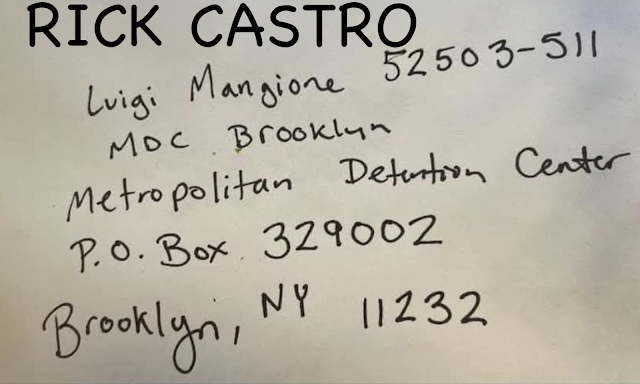 RICK CASTRO
Luigi Mangione 52503-511
MDC Brooklyn
Metropolitan Detention Center
P.O. Box 329002
Brooklyn, NY 11232